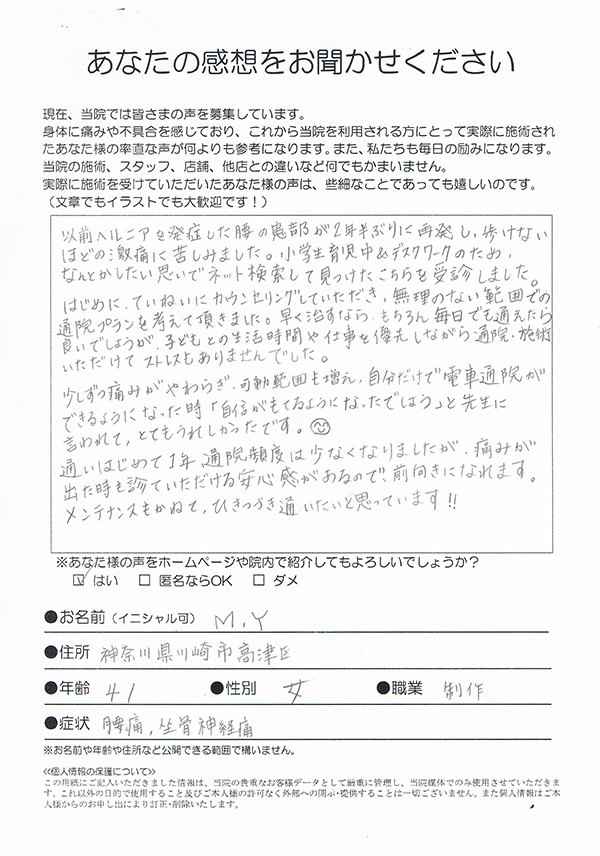 あなたの感想をお聞かせください
現在、当院では皆さまの声を募集しています。
身体に痛みや不具合を感じており、これから当院を利用される方にとって実際に施術され
たあなた様の率直な声が何よりも参考になります。また、私たちも毎日の励みになります。
当院の施術、スタッフ、店舗、他店との違いなど何でもかまいません。
実際に施術を受けていただいたあなた様の声は、些細なことであっても嬉しいのです。
（文章でもイラストでも大歓迎です！）
以前ヘルニアを発症した腰の患部が2年半ぶりに再発し、歩けない
ほどの激痛に苦しみました。小学生育児中&デスクワークのため、
なんとかしたい思いでネット検索して見つけたこちらを受診しました。
はじめに、ていねいにカウンセリングしていただき、無理のない範囲での
通院プランを考えて頂きました。早く治すなら、もちろん毎日でも通えたら
良いでしょうが、子どもとの生活時間や仕事を優先しながら通院、施術
いただけてストレスもありませんでした。
少しずつ痛みがやわらぎ、可動範囲も増え、自分だけで電車通院が
できるようになった時「自信がもてるようになったでしょう」と先生に
言われて、とてもうれしかったです。
通いはじめて1年、通院頻度は少なくなりましたが、痛みが
出た時も診ていただける安心感があるので、前向きになれます。
メンテナンスもかねて、ひきつづき通いたいと思っています!!
※あなた様の声をホームページや院内で紹介してもよろしいでしょうか？
☑ はい ☐ 匿名ならOK ☐ ダメ
●お名前（イニシャル可） M,Y
●住所 神奈川県川崎市高津区
●年齢 41 ●性別 女 ●職業 制作
●症状 腰痛,坐骨神経痛
※お名前や年齢や住所など公開できる範囲で構いません。
≪個人情報の保護について≫
この用紙にご記入いただきました情報は、当院の貴重なお客様データとして厳重に管理し、当院媒体でのみ使用させていただきま
す。これ以外の目的で使用すること及びご本人様の許可なく外部への開示・提供することは一切ございません。また個人情報はご本
人様からのお申し出により訂正・削除いたします。